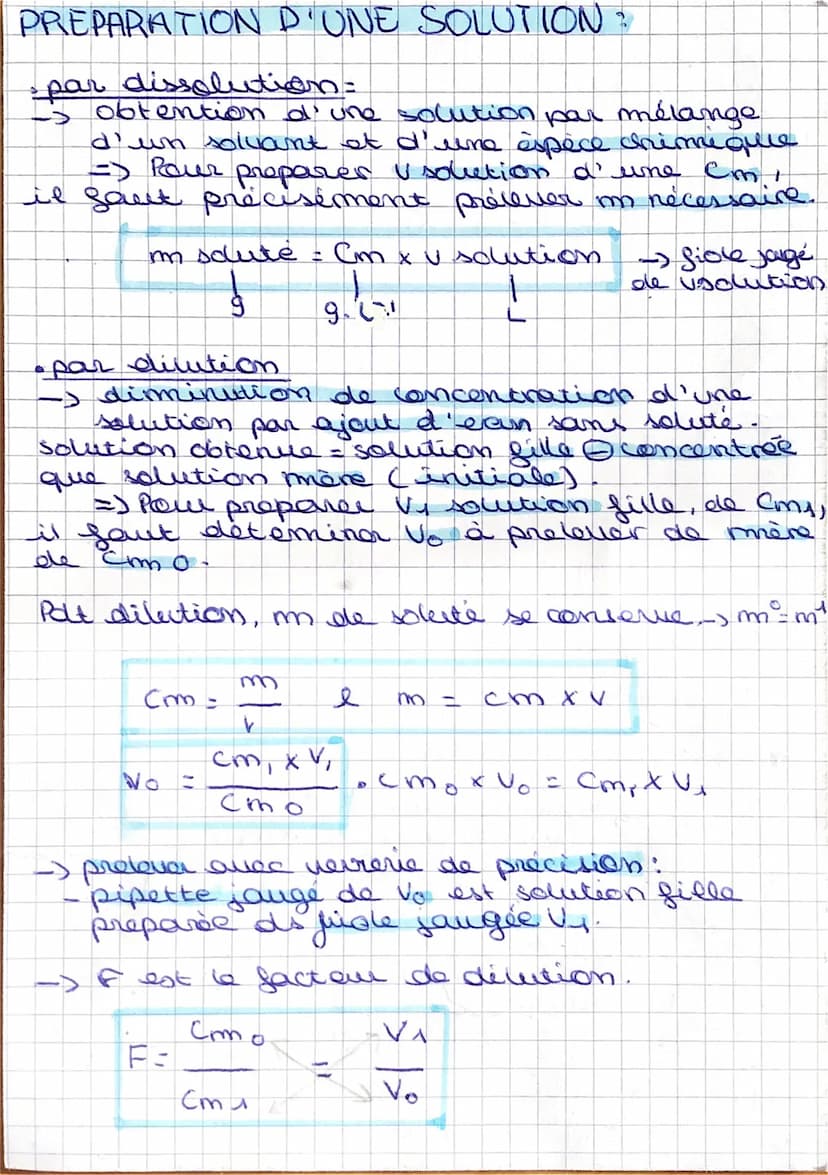 PREPARATION D'UNE SOLUTION :
• par dissolution =
-> obtention d'une solution par mélange
d'un solvant et d'une èspèce chimique
=> Pour preparer V solution d'une Cm,
il faut précisément prélever m nécessaire.
m soluté = Cm x V solution -> fiole jaugé
de Vsolution
g g.L-1 L
• par dilution
-> diminution de concentration d'une
solution par ajout d'eau sans soluté.
solution obtenue = solution fille ⊖ concentrée
que solution mère (initiale).
=> Pour preparer V1 solution fille, de Cm1,
il faut déterminer V0 à prelever de mère
de Cm0.
Pdt dilution, m de soluté se conserve -> m0=m1
Cm = m/V & m = cm x v
V0 = Cm1 x V1 / Cm0 • Cm0 x V0 = Cm1 x V1
-> prelever avec verrerie de précision :
- pipette jaugé de V0 est solution fille
preparée ds fiole jaugée V1.
-> F est le facteur de dilution.
F = Cm0 / Cm1 = V1 / V0